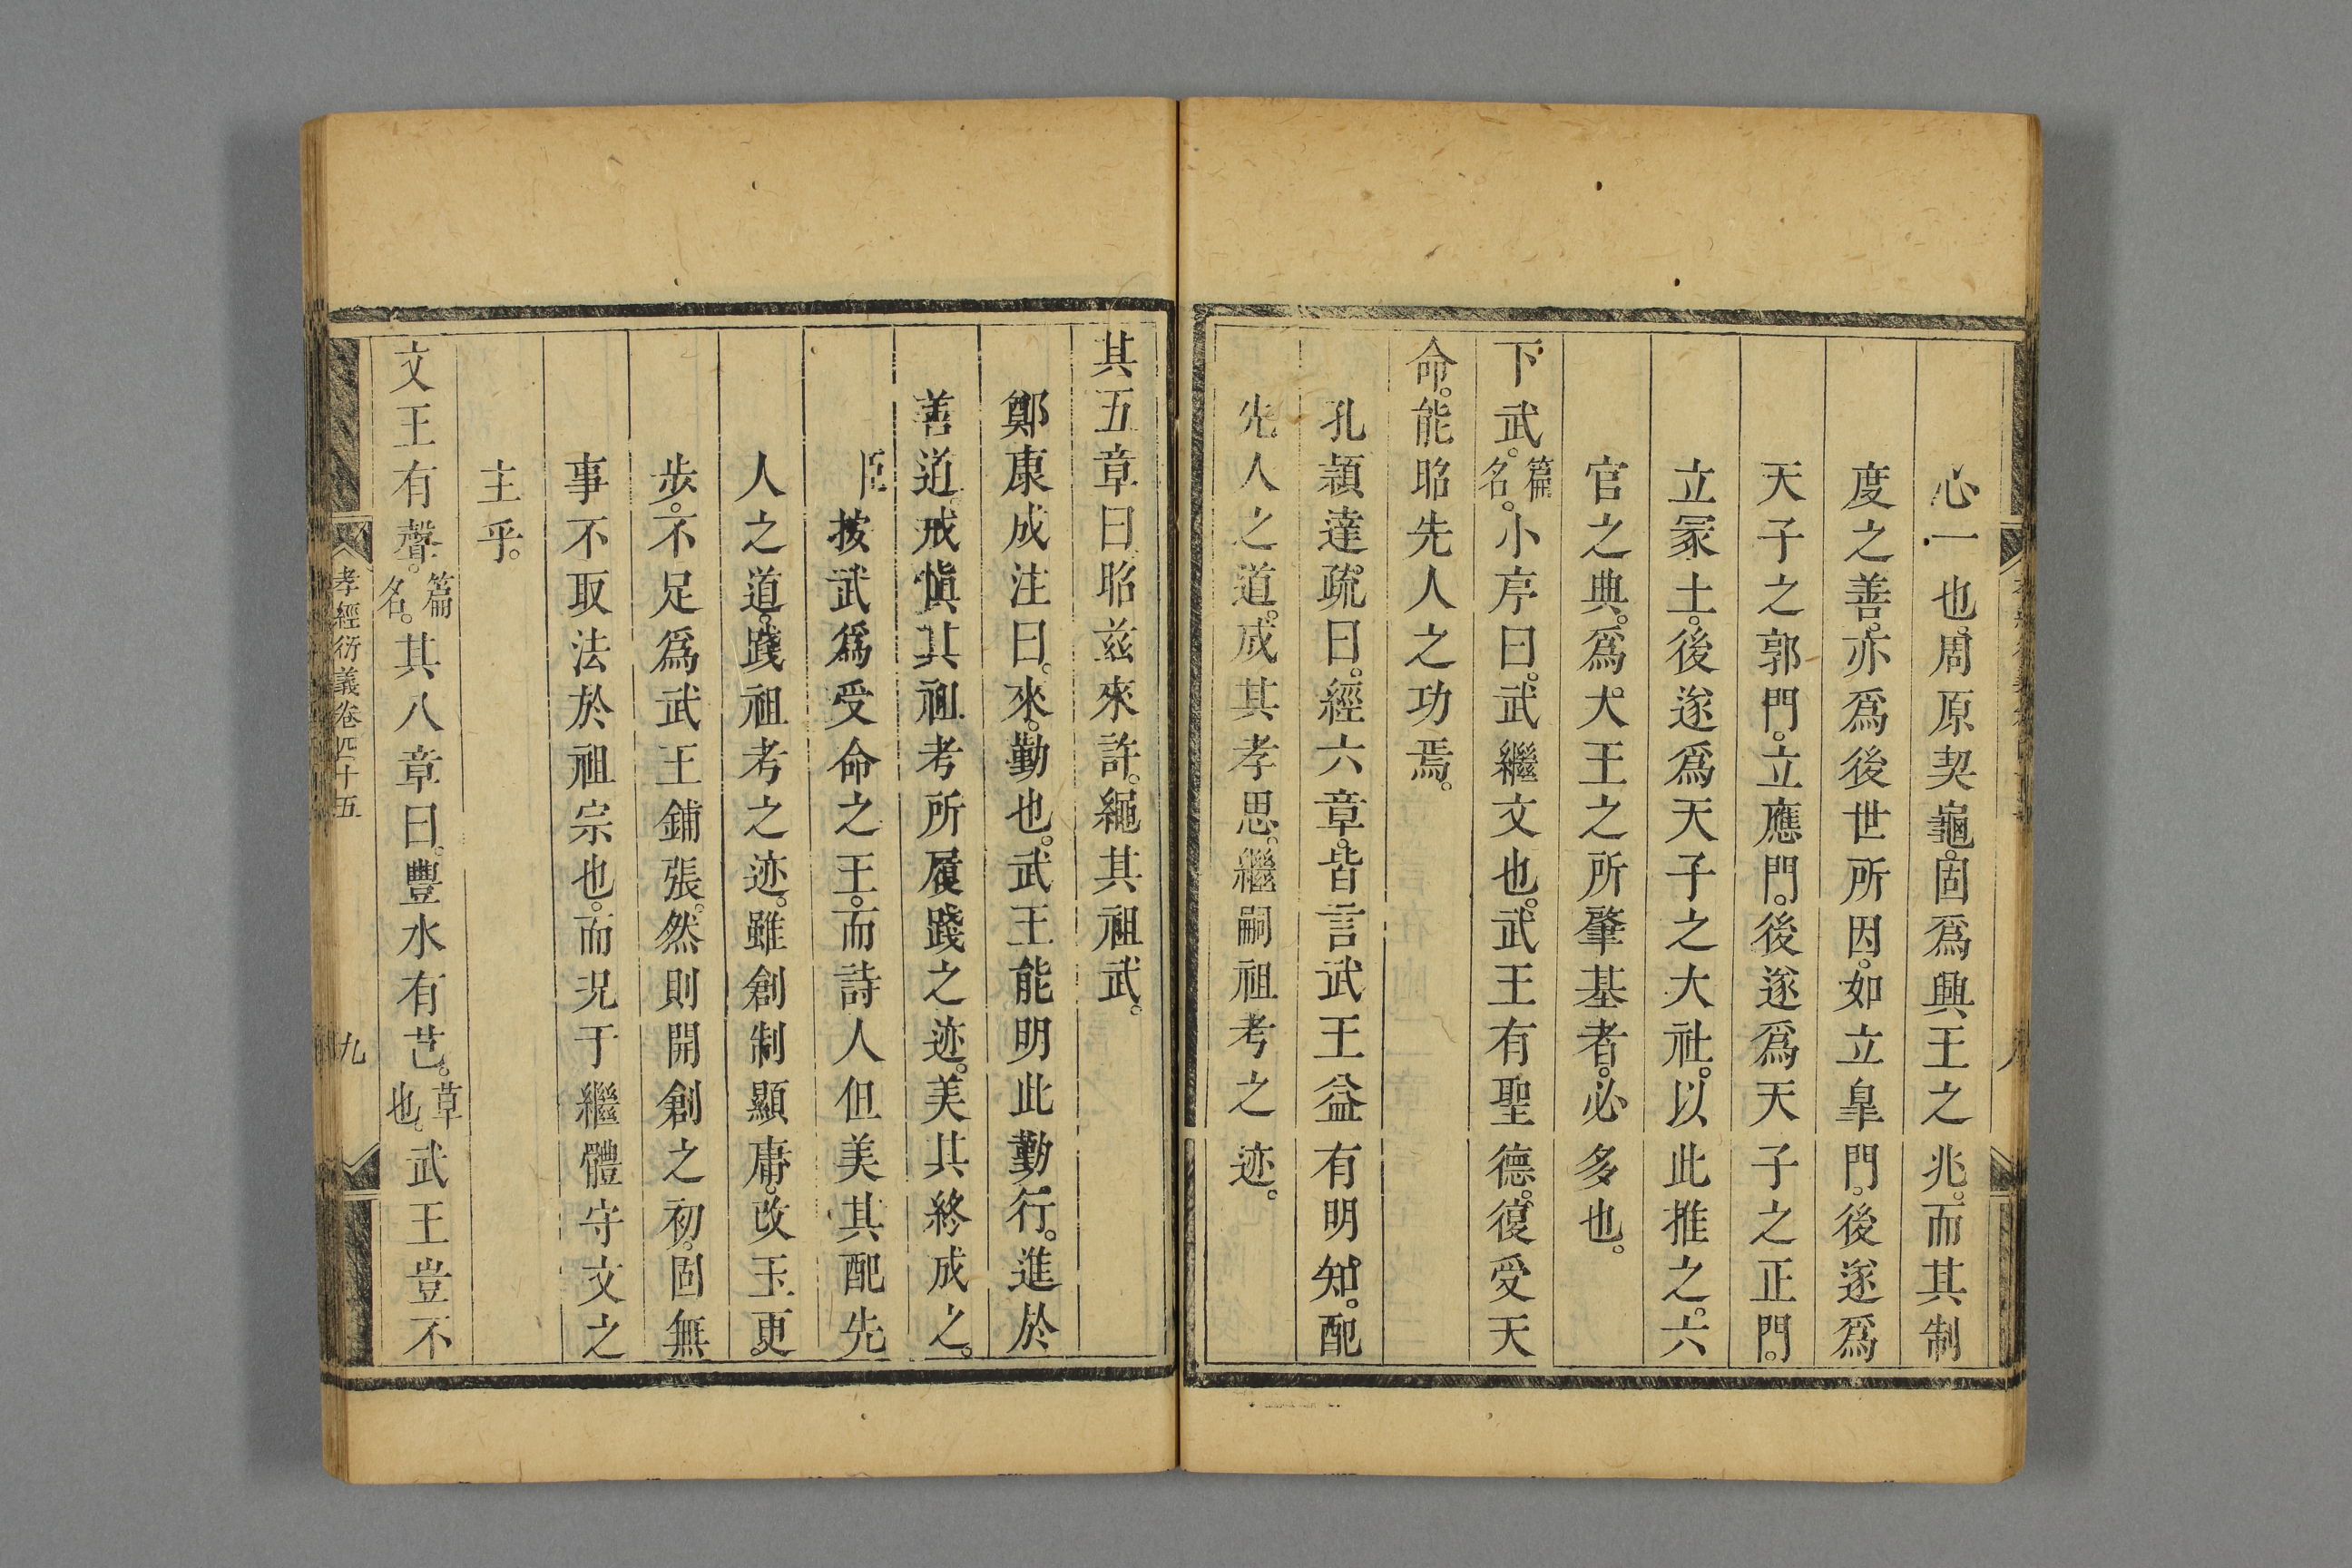 心一也。周原契龜。固爲興王之兆。而其制
度之善。亦爲後世所因。如立皐門。後遂爲
天子之郭門。立應門。後遂爲天子之正門。
立冡土。後遂爲天子之大社。以此推之。六
官之典。爲大王之所肇基者。必多也。
下武。篇名。小序曰。武繼文也。武王有聖德。復受天
命。能昭先人之功焉。
孔頴達疏曰。經六章。皆言武王益有明知。配
先人之道。成其孝思。繼嗣祖考之迹。
其五章曰昭兹來許。繩其祖武。
鄭康成注曰。來。勤也。武王能明此勤行。進於
善道。戒愼其祖考所履踐之迹。美其終成之。
臣按武爲受命之王。而詩人但美其配先
人之道。踐祖考之迹。雖創制顯庸。改玉更
步。不足爲武王鋪張。然則開創之初。固無
事不取法於祖宗也。而况于繼體守文之
主乎。
文王有聲。篇名。其八章曰。豐水有芑。草也。武王豈不
孝經衍義卷四十五
九